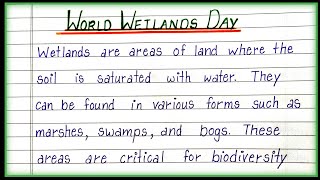 WORLD WETLANDS DAY
Wetlands are areas of land where the
soil is saturated with water. They
can be found in various forms such as
marshes, swamps, and bogs. These
areas are critical for biodiversity